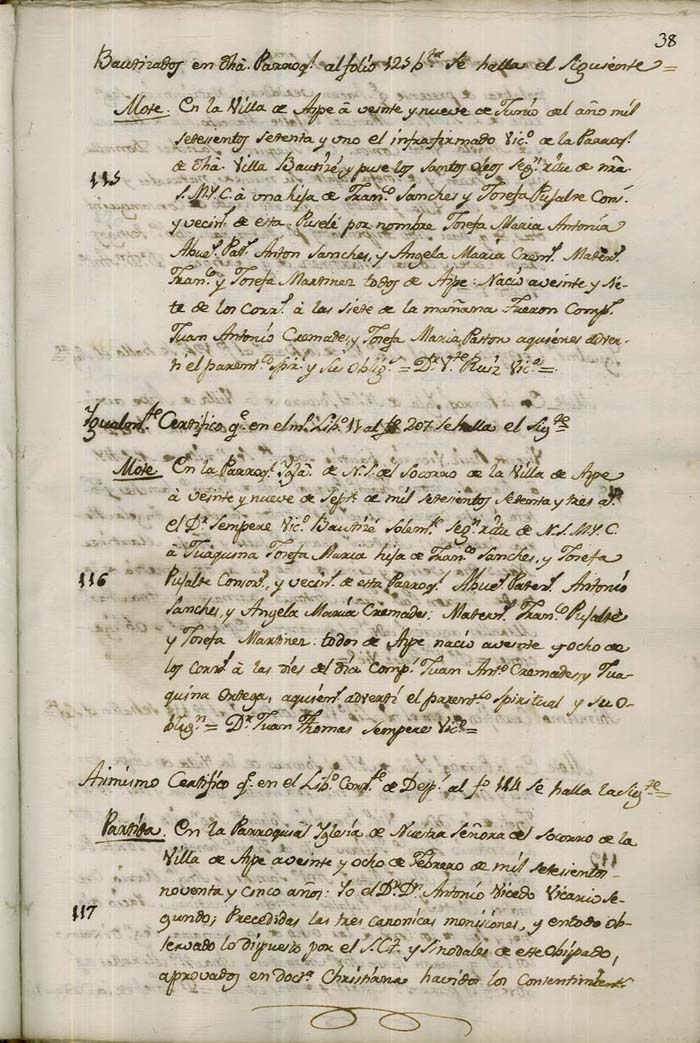 38
Bautizados en dhã. Parroql. al folio 125 bta. se halla el Siguiente =
Mote. En la Villa de Aspe á veinte y nueve de Junio del año mil
setesientos setenta y uno el infrafirmado Vico. de la Parroql.
115
de dhã. Villa Bautizé, y puse los Santos oleos Segn. ritu de nrã.
S. M. Y. C. à una hija de Franco. Sanches y Josefa Pujalte Cons.
y vecins. de esta. Puselé por nombre Josefa Maria Antonia
Abuels. Pats. Anton Sanches, y Angela Maria Crems. Materns.
Franco. y Josefa Martinez todos de Aspe: Nació aveinte y Sie-
te de los Corrts. à las siete de la mañana Fueron Comps.
Juan Antonio Cremades, y Josefa Maria Pastor aquiénes adver-
ti el parentco. Spirl. y sus obligs. = Dr. Vte. Ruiz Vico. =
Igualmte. Certifico qe. en el ml. Libo. IV al fo. 207 se halla el Sigte.
Mote. En la Parroql. Iglã. de N. S. del Socorro de la Villa de Aspe
à veinte y nueve de Septe. de mil setesientos setenta y tres as.
el Dr. Sempere Vico. Bautizé Solemte. Segn. ritu de N. S. M. Y. C.
à Juaquina Josefa Maria hija de Franco. Sanches, y Josefa
116
Pujalte Consors. y vecins. de esta Parroql. Abuels. Paters. Antonio
Sanches, y Angela Maria Cremades: Materns. Franco. Pujalte
y Josefa Martinez. todos de Aspe nació aveinte y ocho de
los Corrts. à las dies del dia Comps. Juan Anto. Cremades, y Jua-
quina Ortega, aquiens. adverti el parentco. Spiritual y su o-
blign. = Dr. Juan Thomas Sempere Vico. =
Asimismo Certifico qe. en el Libo. Corrte. de Desps. al fo. 114 se halla la Sigte. =
Partida. En la Parroquial Iglesia de Nuestra Señora del Socorro de la
Villa de Aspe aveinte y ocho de Febrero de mil setesientos
noventa y cinco años: Yo el Dr. Dn. Antonio Vicedo Vicario Se-
117
gundo; Precedidas las tres canonicas monisiones, y entodo ob-
servado lo dispuesto por el S. C. T. y Sinodales de este Obispado,
aprovados en doctna. Christiana havidos los Consentimients.